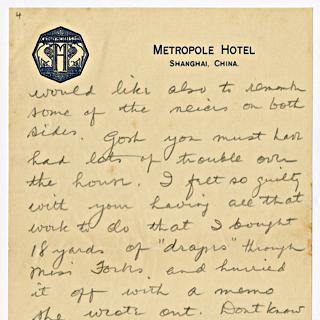 4
METROPOLE HOTEL
SHANGHAI, CHINA.
would like also to remember
some of the neices on both
sides. Gosh you must have
had lots of trouble over
the house. I felt so guilty
with your having all that
work to do that I bought
18 yards of "drapes" through
Miss Forks, and hurried
it off with a memo
she wrote out. Dont know